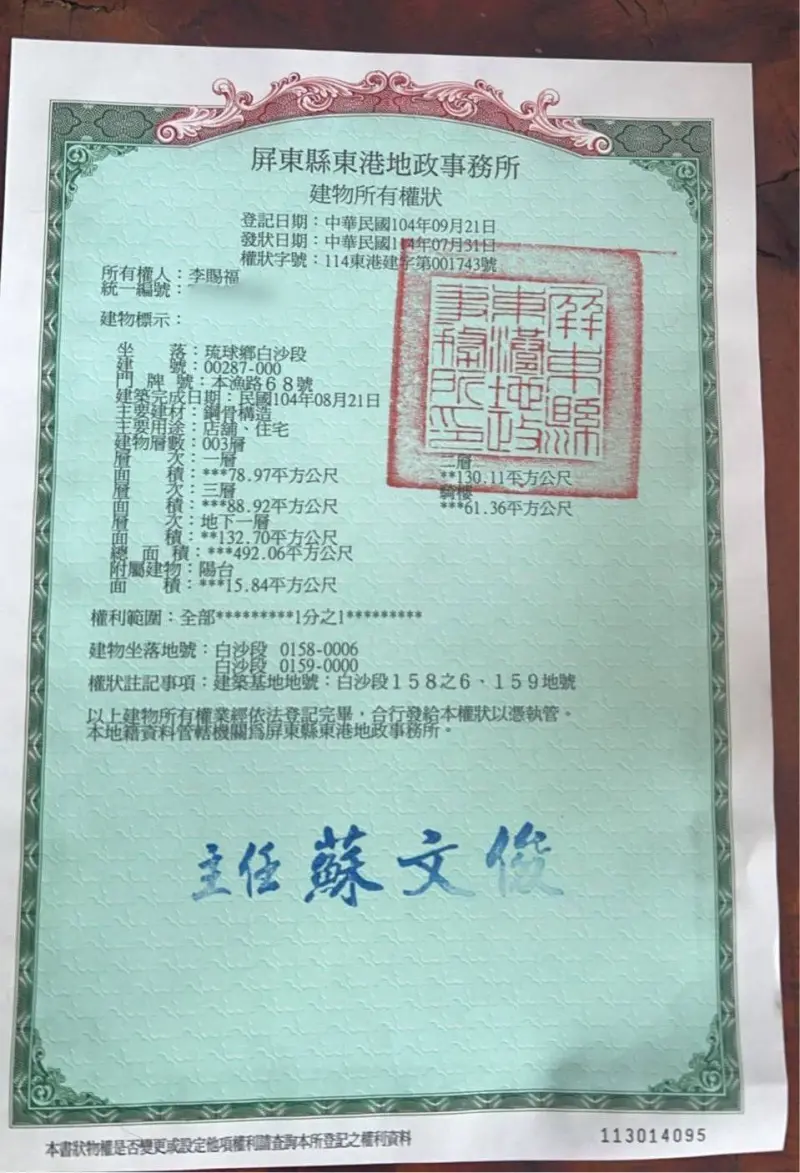 屏東縣東港地政事務所
建物所有權狀
登記日期：中華民國104年09月21日
發狀日期：中華民國114年07月31日
權狀字號：114東港建字第001743號
所有權人：李賜福
統一編號：
建物標示：
坐　　落：琉球鄉白沙段
建　　號：00287-000
門　牌　號：本漁路６８號
建築完成日期：民國104年08月21日
主要建材：鋼骨構造
主要用途：店舖、住宅
建物層數：003層
層　　次：一層　二層
面　　積：***78.97平方公尺　**130.11平方公尺
層　　次：三層　騎樓
面　　積：***88.92平方公尺　***61.36平方公尺
層　　次：地下一層
面　　積：**132.70平方公尺
總　面　積：***492.06平方公尺
附屬建物：陽台
面　　積：***15.84平方公尺
權利範圍：全部*********1分之1*********
建物坐落地號：白沙段 0158-0006
白沙段 0159-0000
權狀註記事項：建築基地地號：白沙段１５８之６、１５９地號
以上建物所有權業經依法登記完畢，合行發給本權狀以憑執管。
本地籍資料管轄機關為屏東縣東港地政事務所。
屏東縣東港地政事務所印
主任 蘇文俊
本書狀物權是否變更或設定他項權利請查詢本所登記之權利資料
113014095